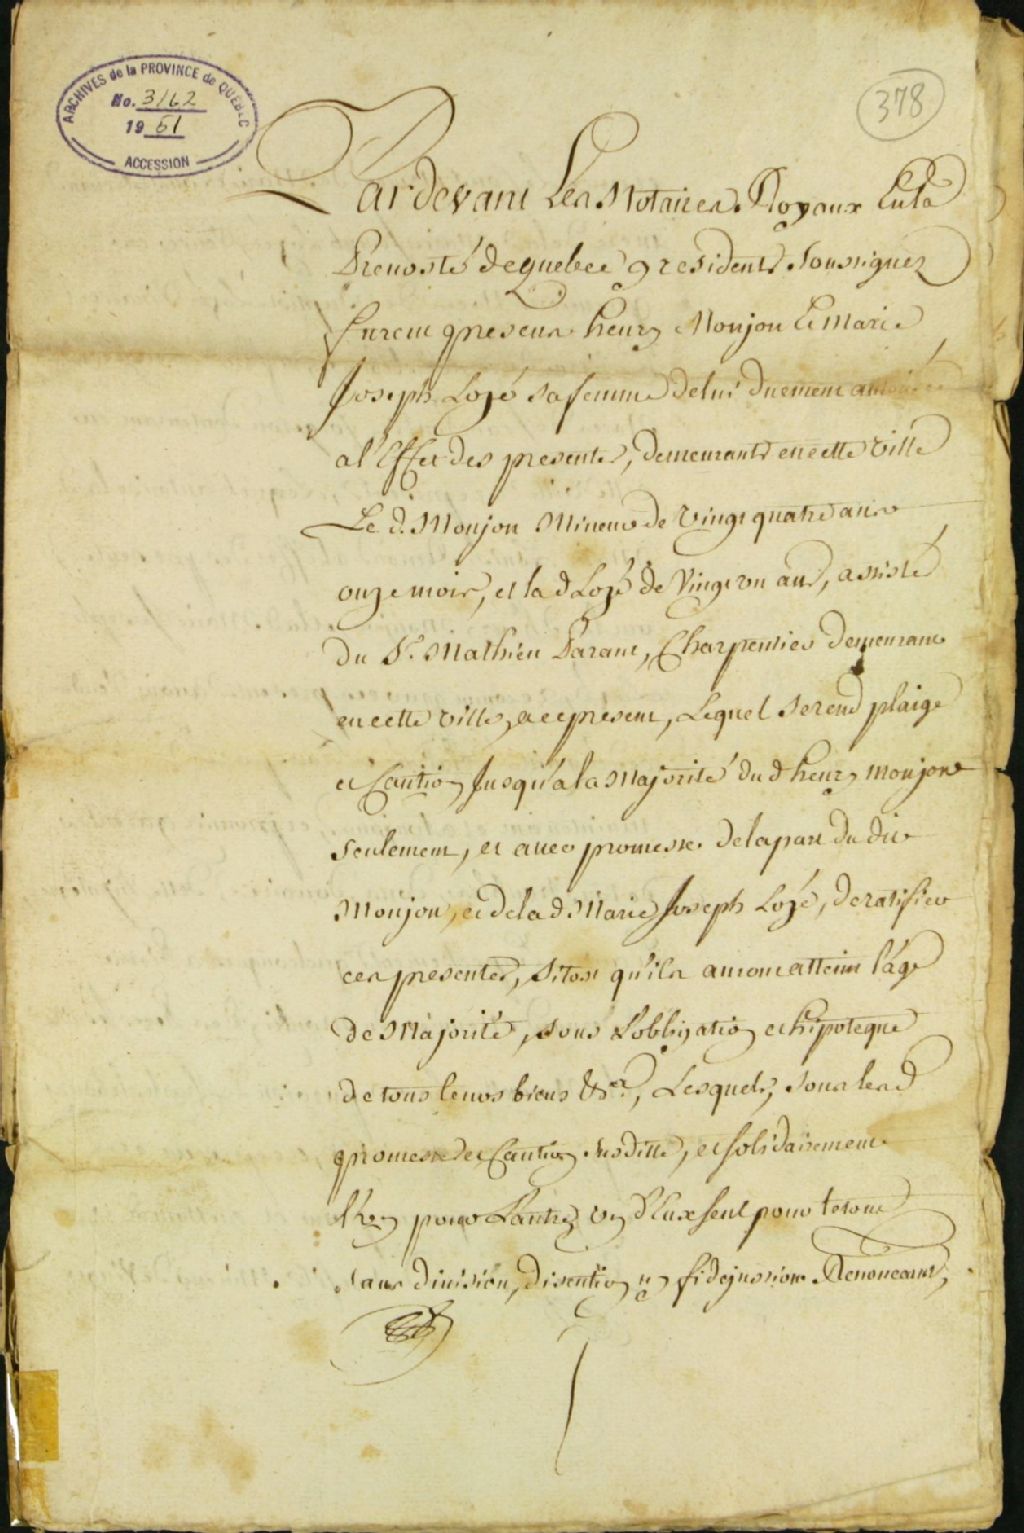 ARCHIVES de la PROVINCE de QUEBEC
No. 3162
19 61
ACCESSION
378
Pardevant Les Notaires Royaux En la
Prevosté de quebec y residents Soussignez
furent presens henry Monjon Et Marie
Joseph Lozé sa femme de lui duement
a l'Effet des presentes, demeurants en cette ville
Le d. Monjon Mineur de vingt quatre ans
onze mois, et la d Lozé de Vingt un ans, assisté
du Sr. Mathieu Parant, Charpentier demeurant
en cette ville, a ce present, Lequel se rend plaige
et Caution Jusqu'a la Majorité du d henry monjon
seulement, et avec promesse de la part du dit
Monjon, et de la d Marie Joseph Lozé, de ratifier
ces presentes, sitost qu'ils auront atteint l'age
de Majorité, sous L'obligation et hipoteque
de tous leurs biens &ca, Lesquels, sous les d
promesse et Caution susditte, et solidairement
l'un pour L'autre un d'Eux seul pour le tout
sans division, discution ny fidejussion Renonceant,